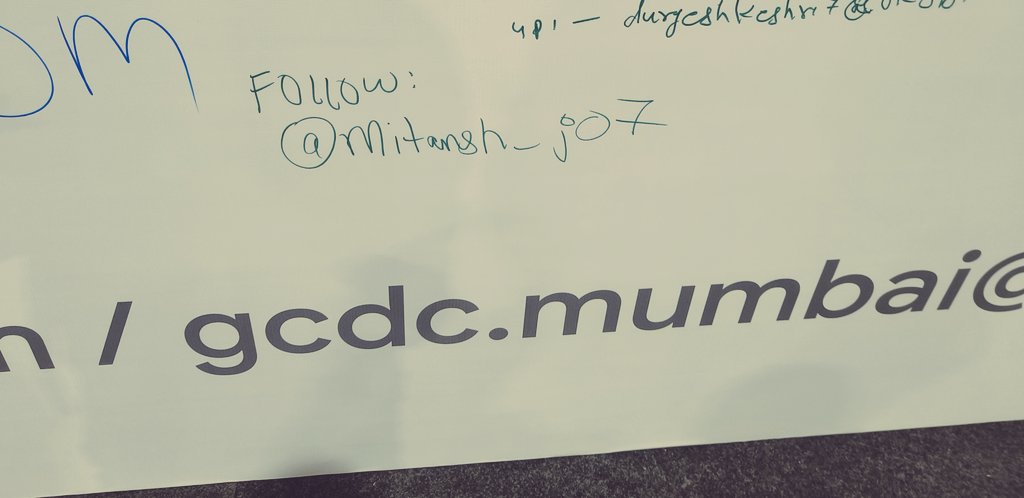 upi - durgeshkeshri7@
OM
FOLLOW:
@Mitansh_j07
n / gcdc.mumbai@